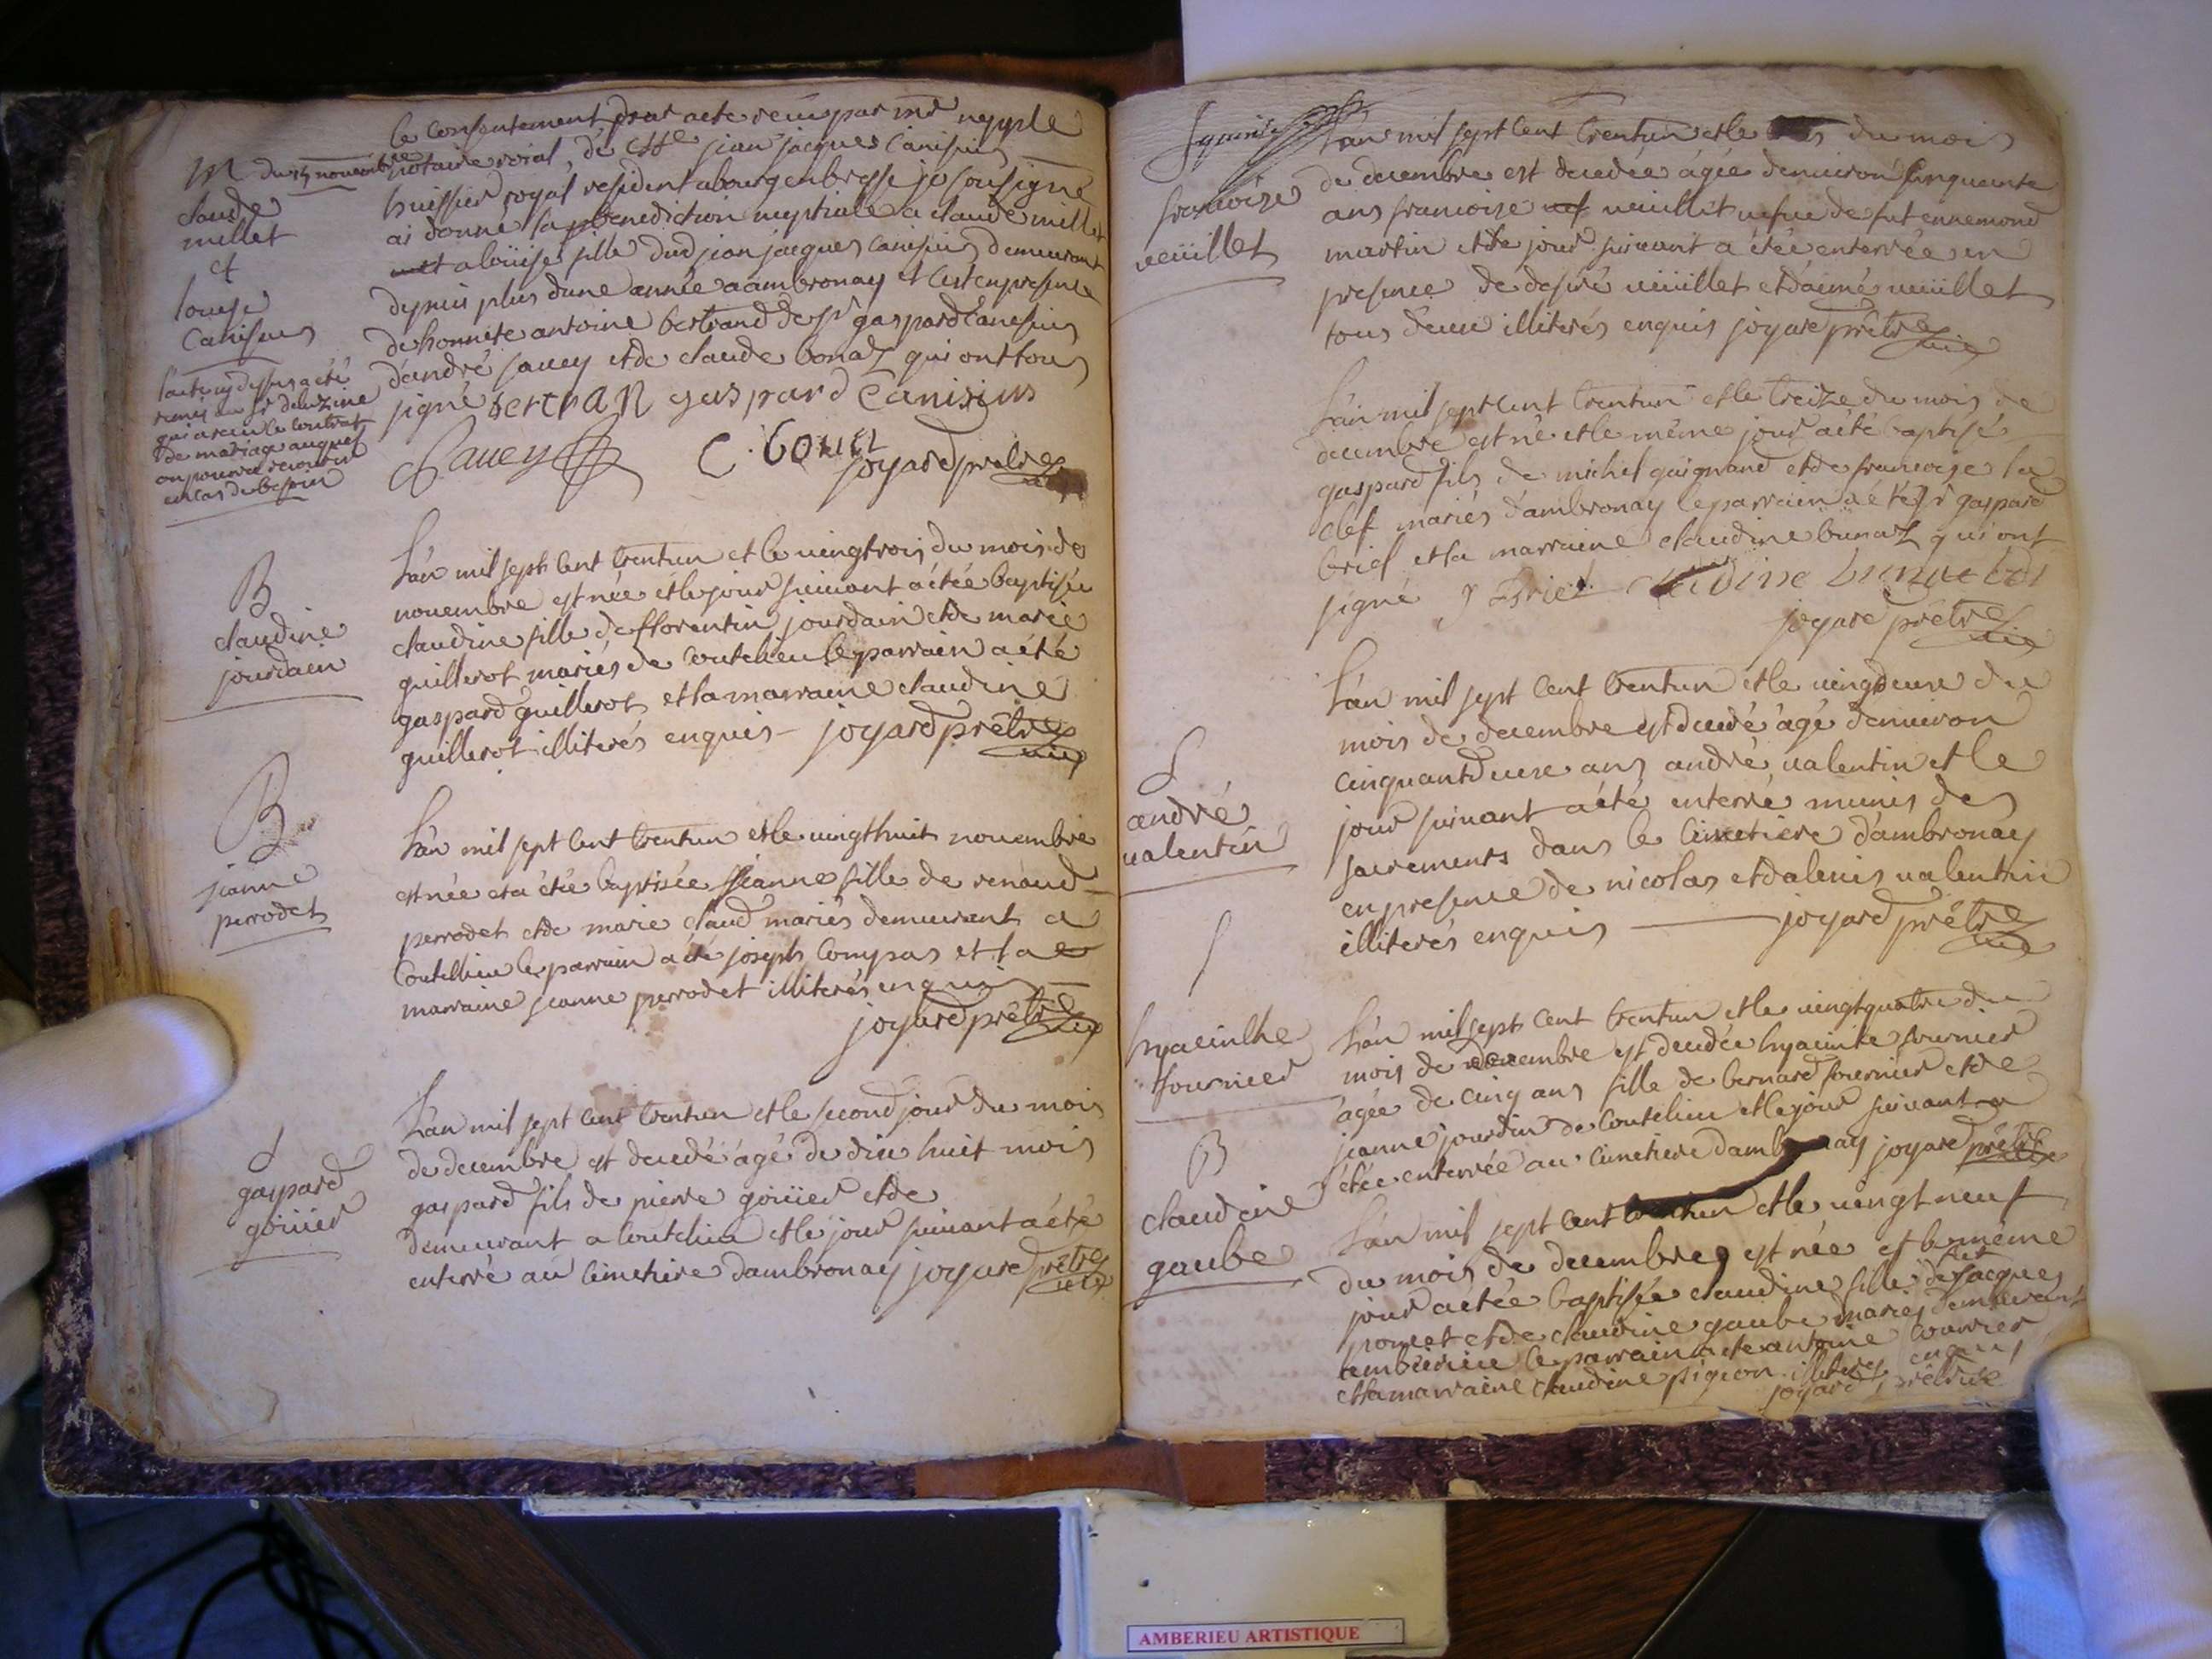 le consentement par acte receu par mr
M du 15 novembre
notaire roial, de sr jean jacques canisius
huissier royal resident a bourg en bresse je soussigné
ai donné la benediction nuptiale a claude millet
et a loüise fille dud jean jacques canisius demeurant
depuis plus dune année a ambronay et cest en presence
de honnete antoine bertrand de sr gaspard canisius
dandré sauey et de claude bonaz qui ont tous
signé bertran gaspard Canisius
Sauey C. bonaz
joyard prêtre vic
claude
millet
et
louise
Canisius
l'acte cy dessus a été
remis au sr
qui a receu le contrat
de mariage auquel
on pourra recourir
en cas de besoin
B
claudine
jourdain
L'an mil sept cent trentun et le vingtrois du mois de
novembre est née et le jour suivant a étée baptisée
claudine fille de florentin jourdain et de marie
guillerot mariés de coutelieu le parrain a été
gaspard guillerot et la marraine claudine
guillerot illiterés enquis joyard prêtre vic
B
jeanne
perrodet
L'an mil sept cent trentun et le vingthuit novembre
est née et a étée baptisée jeanne fille de renaud
perrodet et de marie claud mariés demeurant a
Coutelieu le parrain a été joseph compas et la
marraine jeanne perrodet illiterés enquis
joyard prêtre vic
d
gaspard
goiüer
L'an mil sept cent trentun et le second jour du mois
de decembre est decedé agé de dix huit mois
gaspard fils de pierre goiüer et de
demeurant a coutelieu et le jour suivant a été
enterré au cimetiere dambronay joyard prêtre vic
francoise
veüillet
L'an mil sept cent trentun et le du mois
de decembre est decedée agée denviron cinquante
ans francoise veuillet vefue de fut ennemond
martin et le jour suivant a étée enterrée en
presence de desiré veüillet et daimé veüillet
tous deux illiterés enquis joyard prêtre vic
L'an mil sept cent trentun et le treize du mois de
decembre est né et le même jour a été baptisé
gaspard fils de michel guignand et de francoise la
clef mariés d'ambronay le parrain a été sr gaspard
brief et la marraine claudine bunaz qui ont
signé g Brief
joyard prêtre vic
d
andré
valentin
L'an mil sept cent trentun et le vingdeux du
mois de decembre est decedé agé denviron
cinquantdeux ans andré valentin et le
jour suivant a été enterré munis des
sacrements dans le cimetiere d'ambronay
en presence de nicolas et dalexis valentin
illiterés enquis joyard prêtre vic
hyacinthe
fournier
L'an mil sept cent trentun et le vingtquatre du
mois de decembre est decedée hyacinte fournier
agée de cinq ans fille de bernard fournier et de
jeanne jourdin de coutelieu et le jour suivant a
étée enterrée au cimetiere dambronay joyard prêtre
B
claudine
gaube
L'an mil sept cent trentun et le vingt neuf
du mois de decembre est née et le même
jour a étée baptisée claudine fille de jacques
poncet et de claudine gaube mariés demeurant
le parrain a été antoine
et la marraine claudine pigeon illiterés enquis
joyard prêtre
AMBERIEU ARTISTIQUE